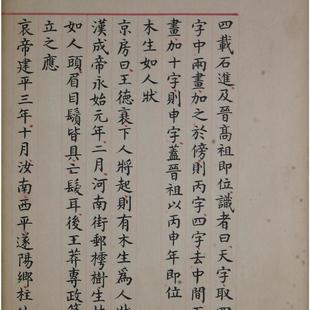 四載石進及晉高祖即位識者曰天字取四
字中兩畫加之於傍則丙字四字去中間
畫加十字則申字蓋晉祖以丙申年即位
木生如人狀
京房曰王德衰下人將起則有木生爲人狀
漢成帝永始元年二月河南街郵樗樹生
如人頭眉目鬚皆具亡髮耳後王莽專政
立之應
哀帝建平三年十月汝南西平遂陽鄉柱